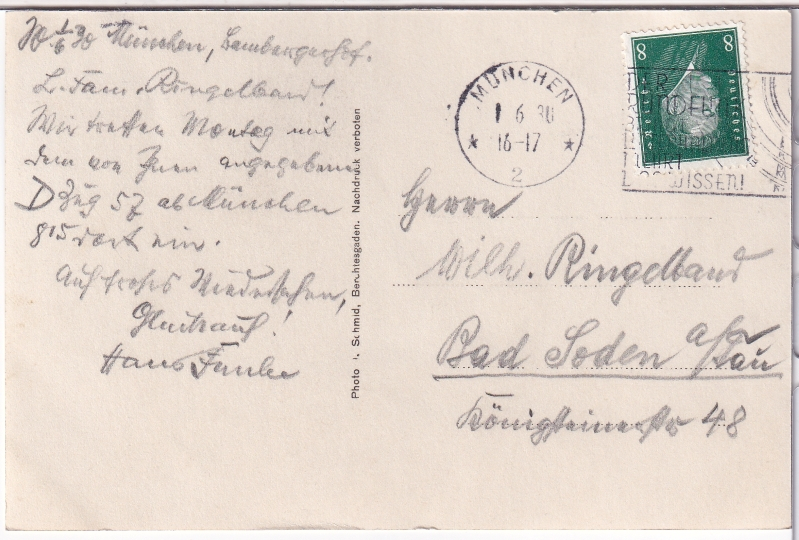 1/6 30 München, Bambergerhof.
L. Fam. Ringelband!
Wir treffen Montag mit
dem von Ihnen angegebenen
D Zug 57 ab München
8 15 dort ein.
Auf frohes Wiedersehen,
Glückauf!
Hans Funke
Photo Schmid, Berchtesgaden. Nachdruck verboten
MÜNCHEN
1 6 30
16-17
* *
2
8 8
Deutsches
Reich
WISSEN!
Herrn
Wilh. Ringelband
Bad Soden a/Tau
Königsteinerstr 48